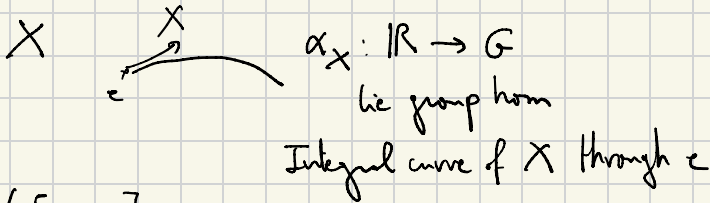 X
X
e
α_X : ℝ → G
Lie group hom
Integral curve of X through e